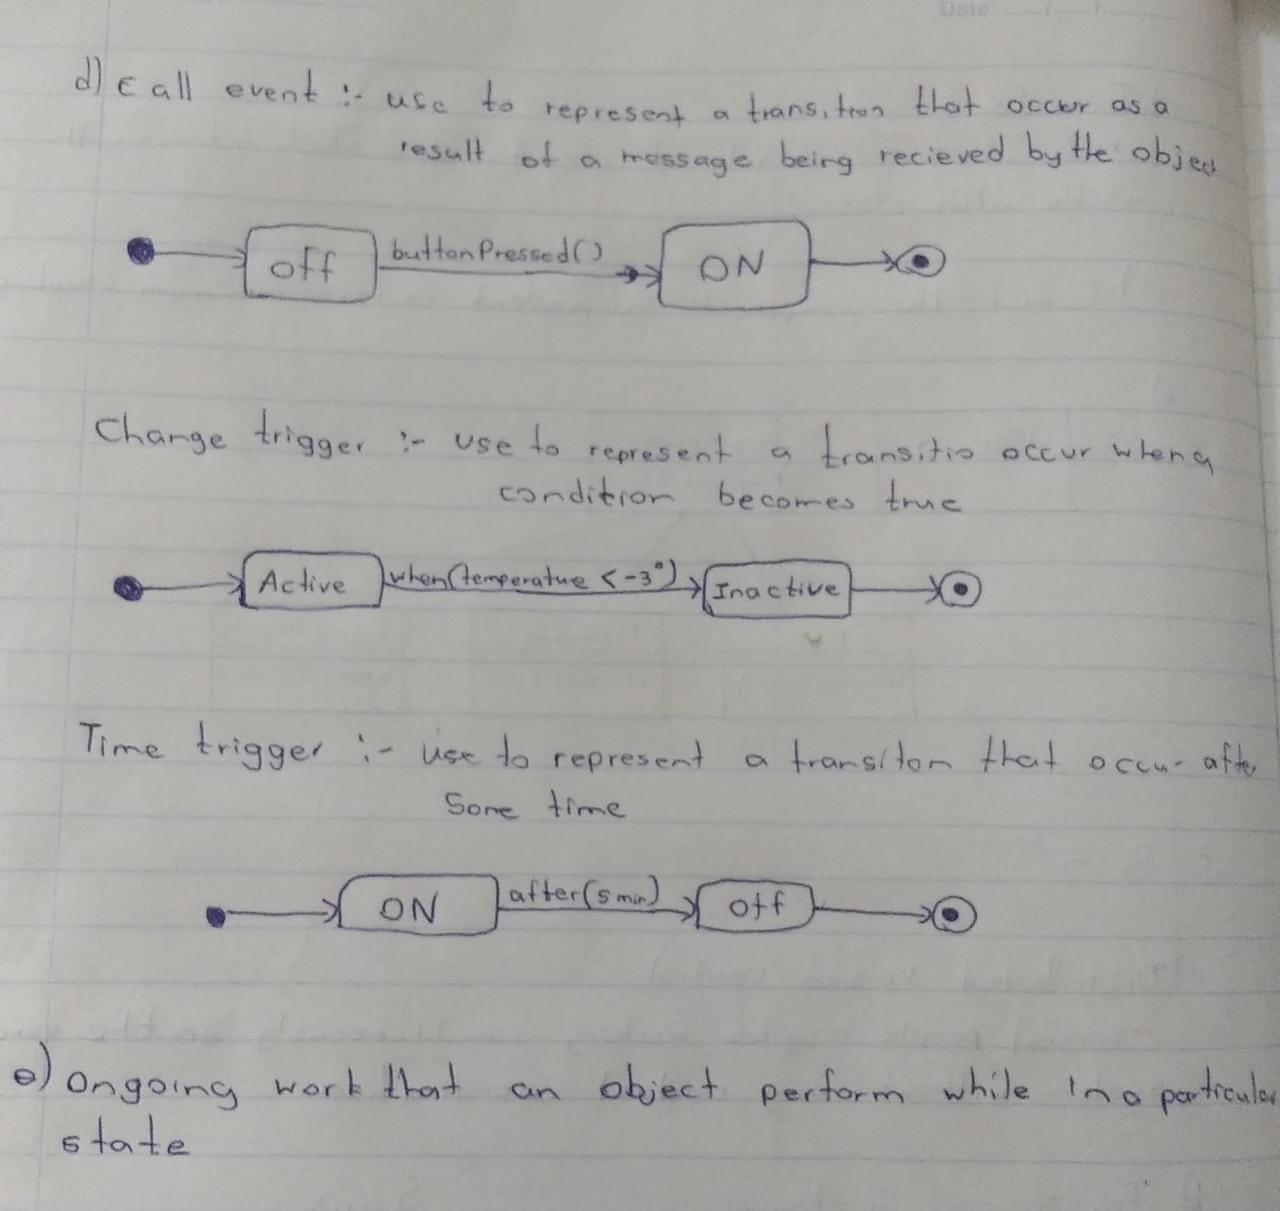 Date
d) Call event :- use to represent a transition that occur as a
result of a message being recieved by the object
off buttonPressed() ON
Change trigger :- use to represent a transitio occur when a
condition becomes true
Active when(temperature <-3°) Inactive
Time trigger :- use to represent a transiton that occur after
Some time
ON after(5min) off
e) ongoing work that an object perform while in a particular
state